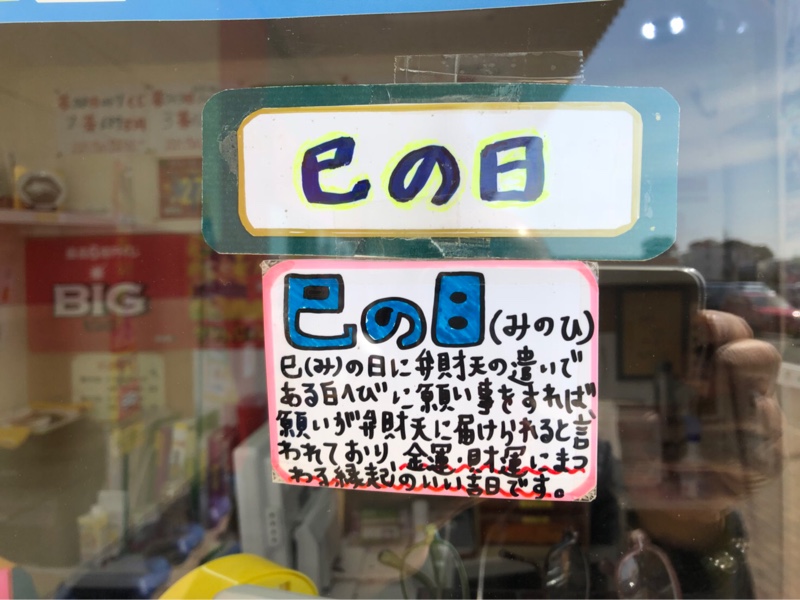 巳の日
巳の日(みのひ)
巳(み)の日に弁財天の遣いで
ある白へびに願い事をすれば、
願いが弁財天に届けられると言
われており、金運・財運にまつ
わる縁起のいい吉日です。
BIG